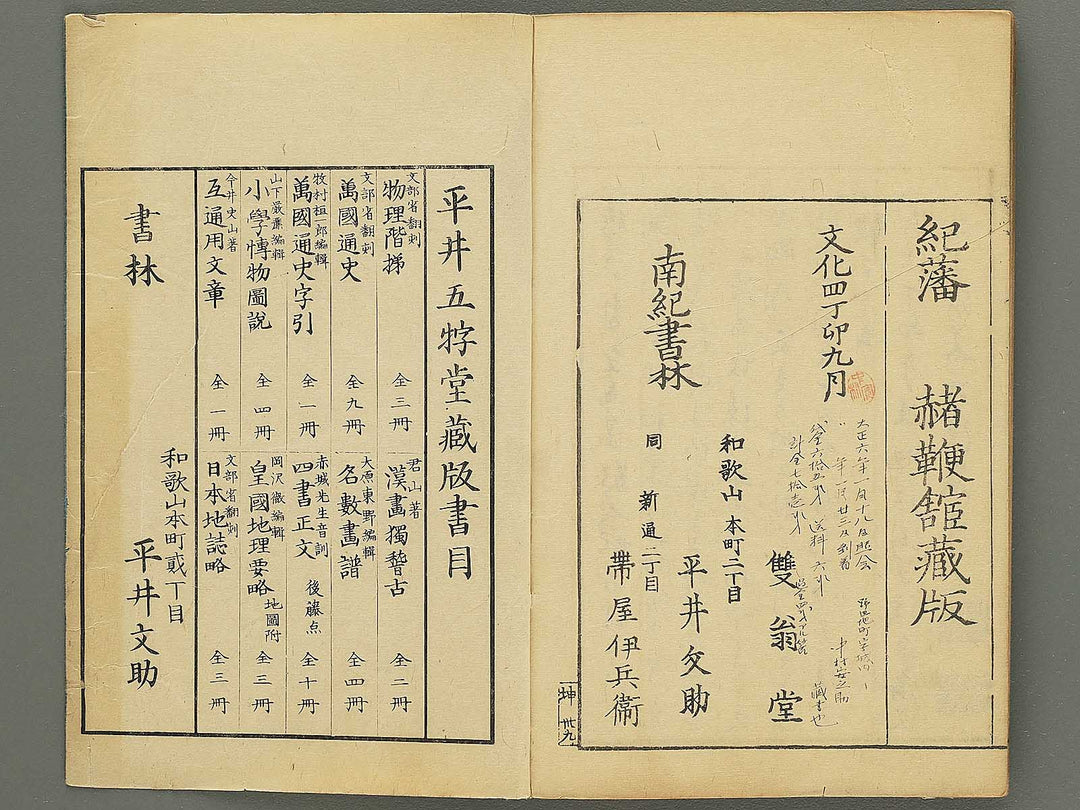 紀藩 赭鞭舘藏版
文化四丁卯九月
雙翁堂
和歌山本町二丁目
平井文助
南紀書林
同 新通二丁目
帶屋伊兵衞
大正六年一月十八日照会
〃 年一月廿三日到着
送料 六
中村安之助
藏書也
坤 卅九
平井五牸堂藏版書目
文部省翻刻
物理階梯 全三冊
君山著
漢畫獨稽古 全二冊
文部省翻刻
萬國通史 全九冊
大原東野編輯
名數畫譜 全四冊
牧村桓一郎編輯
萬國通史字引 全一冊
赤城先生音訓
四書正文 後藤点 全十冊
山下巖麗編輯
小學博物圖說 全四冊
岡沢徵編輯
皇國地理要略 地圖附 全三冊
今井史山著
互通用文章 全一冊
文部省翻刻
日本地誌略 全三冊
和歌山本町貳丁目
書林 平井文助